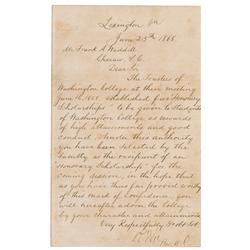 Lexington Va
June 25th 1868.
Mr Frank A Waddill
Cheraw, S.C.
Dear Sir
The Trustees of
Washington College at their meeting
June 16. 1868. established five "Honorary
Scholarships" to be given to Students
of Washington College as rewards
of high attainments and good
conduct. Under this authority
you have been selected by the
Faculty as the recipient of an
"Honorary Scholarship" for the
coming session, in the hope that
as you have thus far proved worthy
of this mark of Confidence, you
will hereafter adorn the College
by your character and attainments
Very Respectfully Yr obt Svt